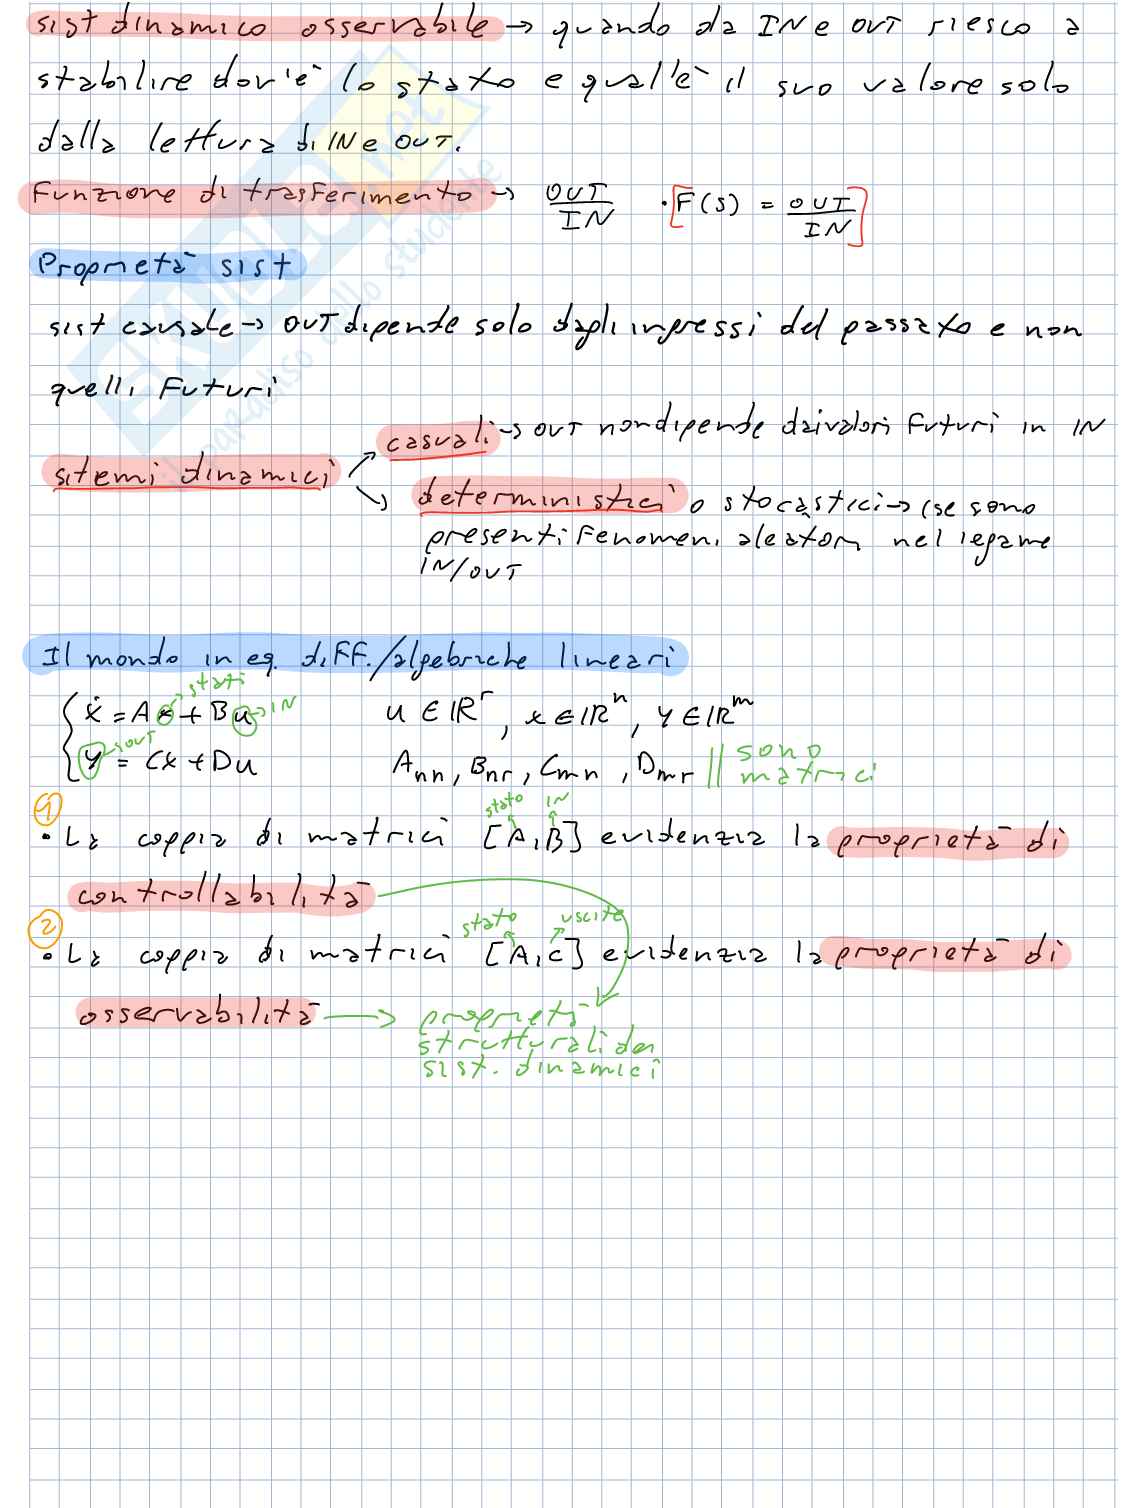 sist dinamico osservabile → quando da IN e OUT riesco a
stabilire dov'è lo stato e qual'è il suo valore solo
dalla lettura di IN e OUT.
Funzione di trasferimento → OUT/IN · [F(s) = OUT/IN]
Proprietà sist
sist causale → OUT dipende solo dagli ingressi del passato e non
quelli Futuri
sitemi dinamici
casuali → OUT non dipende dai valori Futuri in IN
deterministici o stocastici → (se sono
presenti Fenomeni aleatori nel legame
IN/OUT
Il mondo in eq. diFF./algebriche lineari
stati
ẋ = Ax + Bu → IN u ∈ ℝ^r, x ∈ ℝ^n, y ∈ ℝ^m
→ OUT
y = Cx + Du A_nn, B_nr, C_mn, D_mr // sono
matrici
1
stato IN
• La coppia di matrici [A,B] evidenzia la proprietà di
controllabilità
2
stato uscite
• La coppia di matrici [A,C] evidenzia la proprietà di
osservabilità → proprietà
strutturali dei
sist. dinamici
SKUOLA.net
il paradiso dello studente